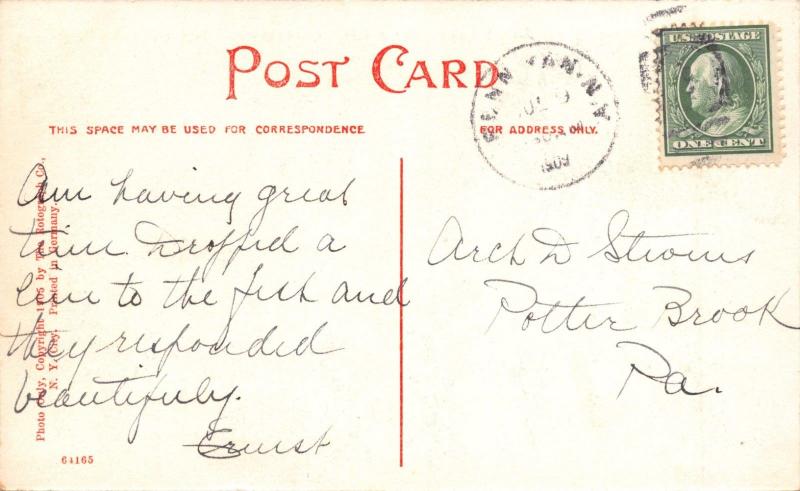 POST CARD
THIS SPACE MAY BE USED FOR CORRESPONDENCE
FOR ADDRESS ONLY.
PENN YAN. N.Y.
1909
U.S. POSTAGE
ONE CENT
Am having great
time. Dropped a
line to the fish and
they responded
beautifully.
Ernest
Arch D Stevens
Potter Brook
Pa.
Photo Only, Copyright 1905 by The Rotograph Co.,
N. Y. City. Printed in Germany.
64165